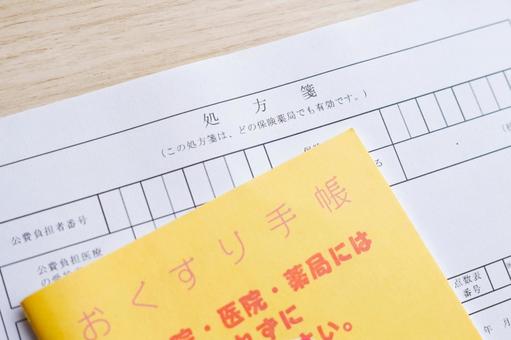 処方箋
(この処方箋は、どの保険薬局でも有効です。)
公費負担者番号
公費負担医療
点数表
番号
年 月
おくすり手帳
院・医院・薬局には
ずに
さい。